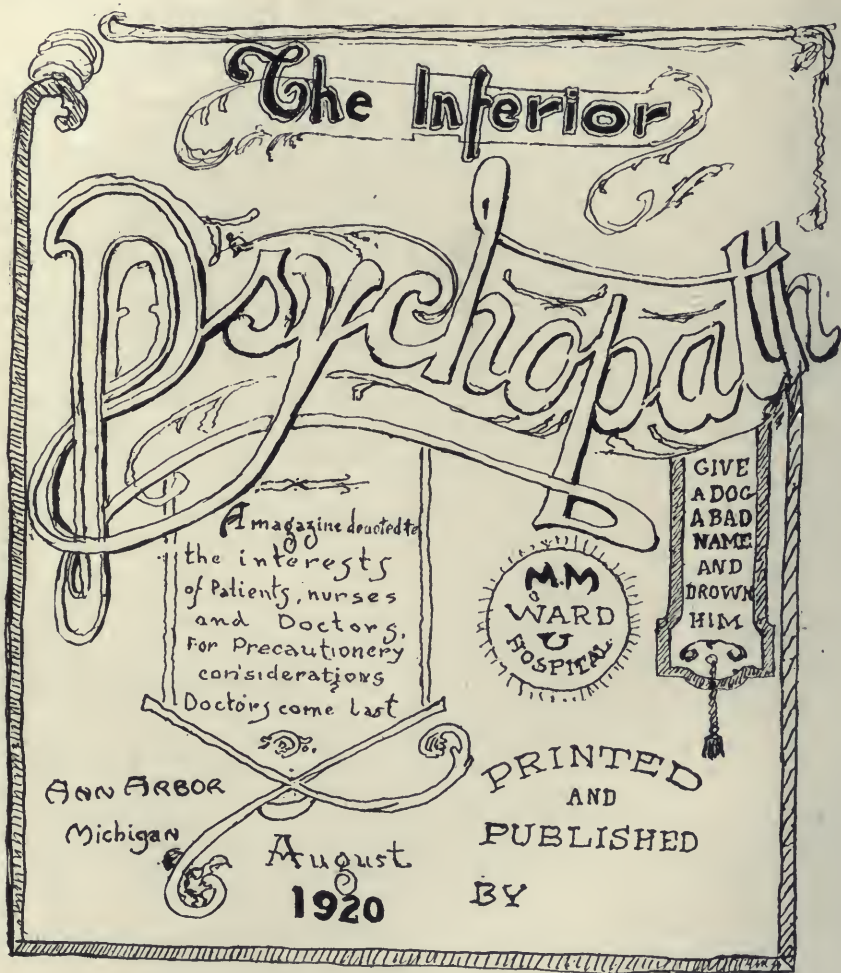 The Inferior
Psychopath
A magazine devoted to
the interests
of Patients, nurses
and Doctors.
For Precautionery
considerations
Doctors come last
M.M
WARD
U
HOSPITAL.
GIVE
A DOG
A BAD
NAME
AND
DROWN
HIM
ANN ARBOR
Michigan
August
1920
PRINTED
AND
PUBLISHED
BY